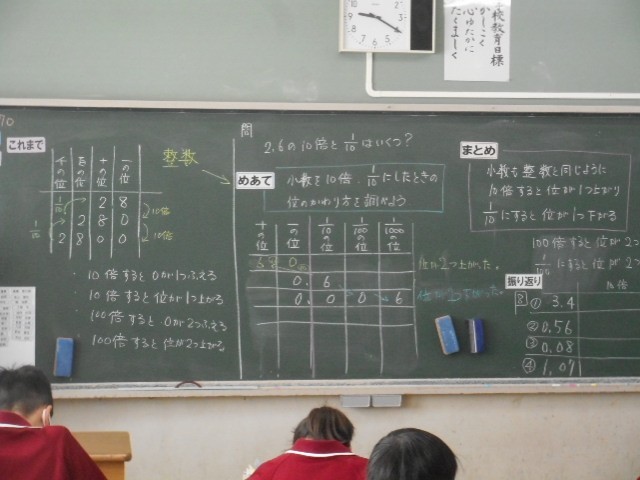 校教育目標
かしこく
心ゆたかに
たくましく
これまで
千の位
百の位
十の位
一の位
2 8
2 8 0
2 8 0 0
1/10
1/10
10倍
10倍
整数
・10倍すると0が1つふえる
・10倍すると位が1つ上がる
・100倍すると0が2つふえる
・100倍すると位が2つ上がる
問
2.6の10倍と1/10はいくつ?
めあて
小数を10倍、1/10にしたときの
位のかわり方を調べよう
十の位
一の位
1/10の位
1/100の位
1/1000の位
0. 6
0. 0 0 6
位が2つ上がった。
まとめ
小数も整数と同じように
10倍すると位が1つ上がり
1/10にすると位が1つ下がる
100倍すると位が2つ
にすると位が
振り返り
8
① 3.4
② 0.56
③ 0.08
④ 1.07